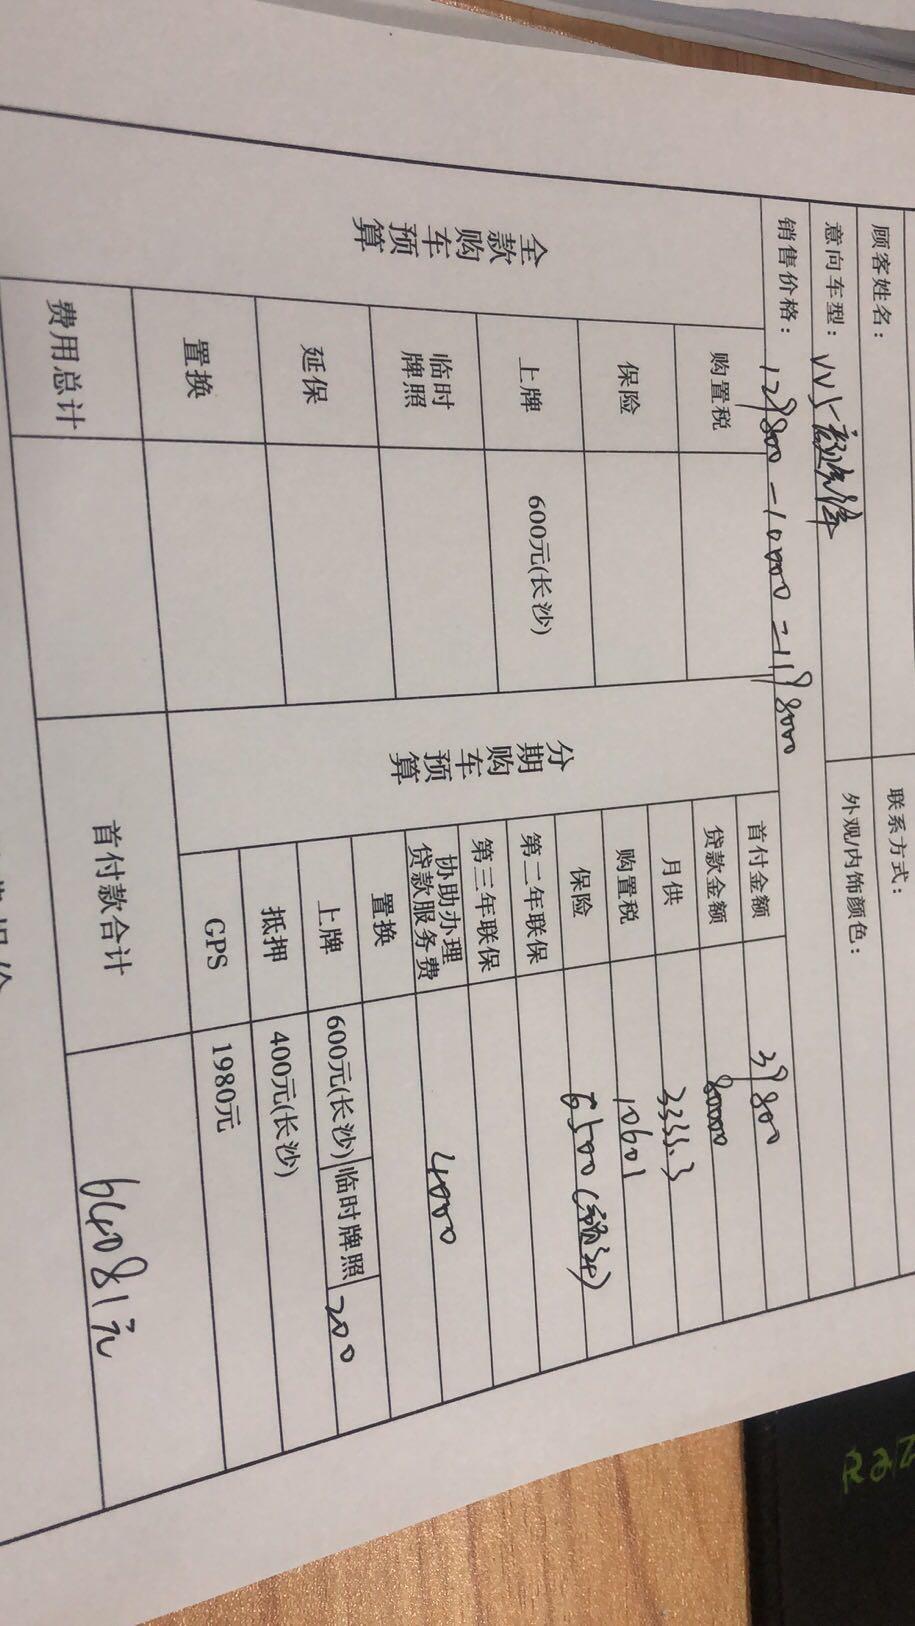 顾客姓名：
联系方式：
意向车型：VV5
外观/内饰颜色：
销售价格：129800-10000=119800
全款购车预算
购置税
保险
上牌 600元(长沙)
临时牌照
延保
置换
费用总计
分期购车预算
首付金额 39800
贷款金额 80000
月供 3333.3
购置税 10601
保险 6500
第二年联保
第三年联保
协助办理贷款服务费 4000
置换
上牌 600元(长沙) 临时牌照 200
抵押 400元(长沙)
GPS 1980元
首付款合计 64081元